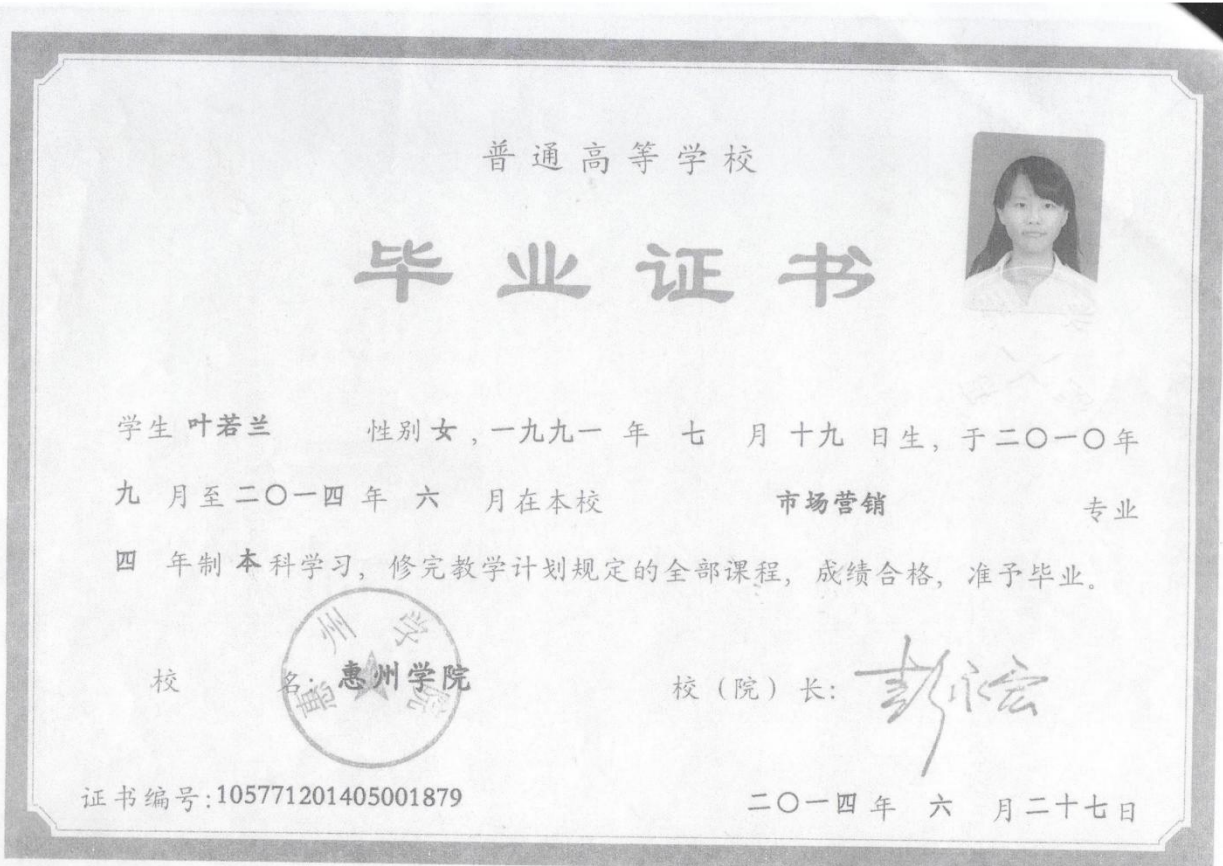 普通高等学校
毕业证书
学生 叶若兰 性别 女，一九九一 年 七 月 十九 日生，于二〇一〇年
九 月至 二〇一四 年 六 月在本校 市场营销 专业
四 年制 本 科学习，修完教学计划规定的全部课程，成绩合格，准予毕业。
惠州学院
校 名：惠州学院 校（院）长：
证书编号：105771201405001879 二〇一四 年 六 月二十七日